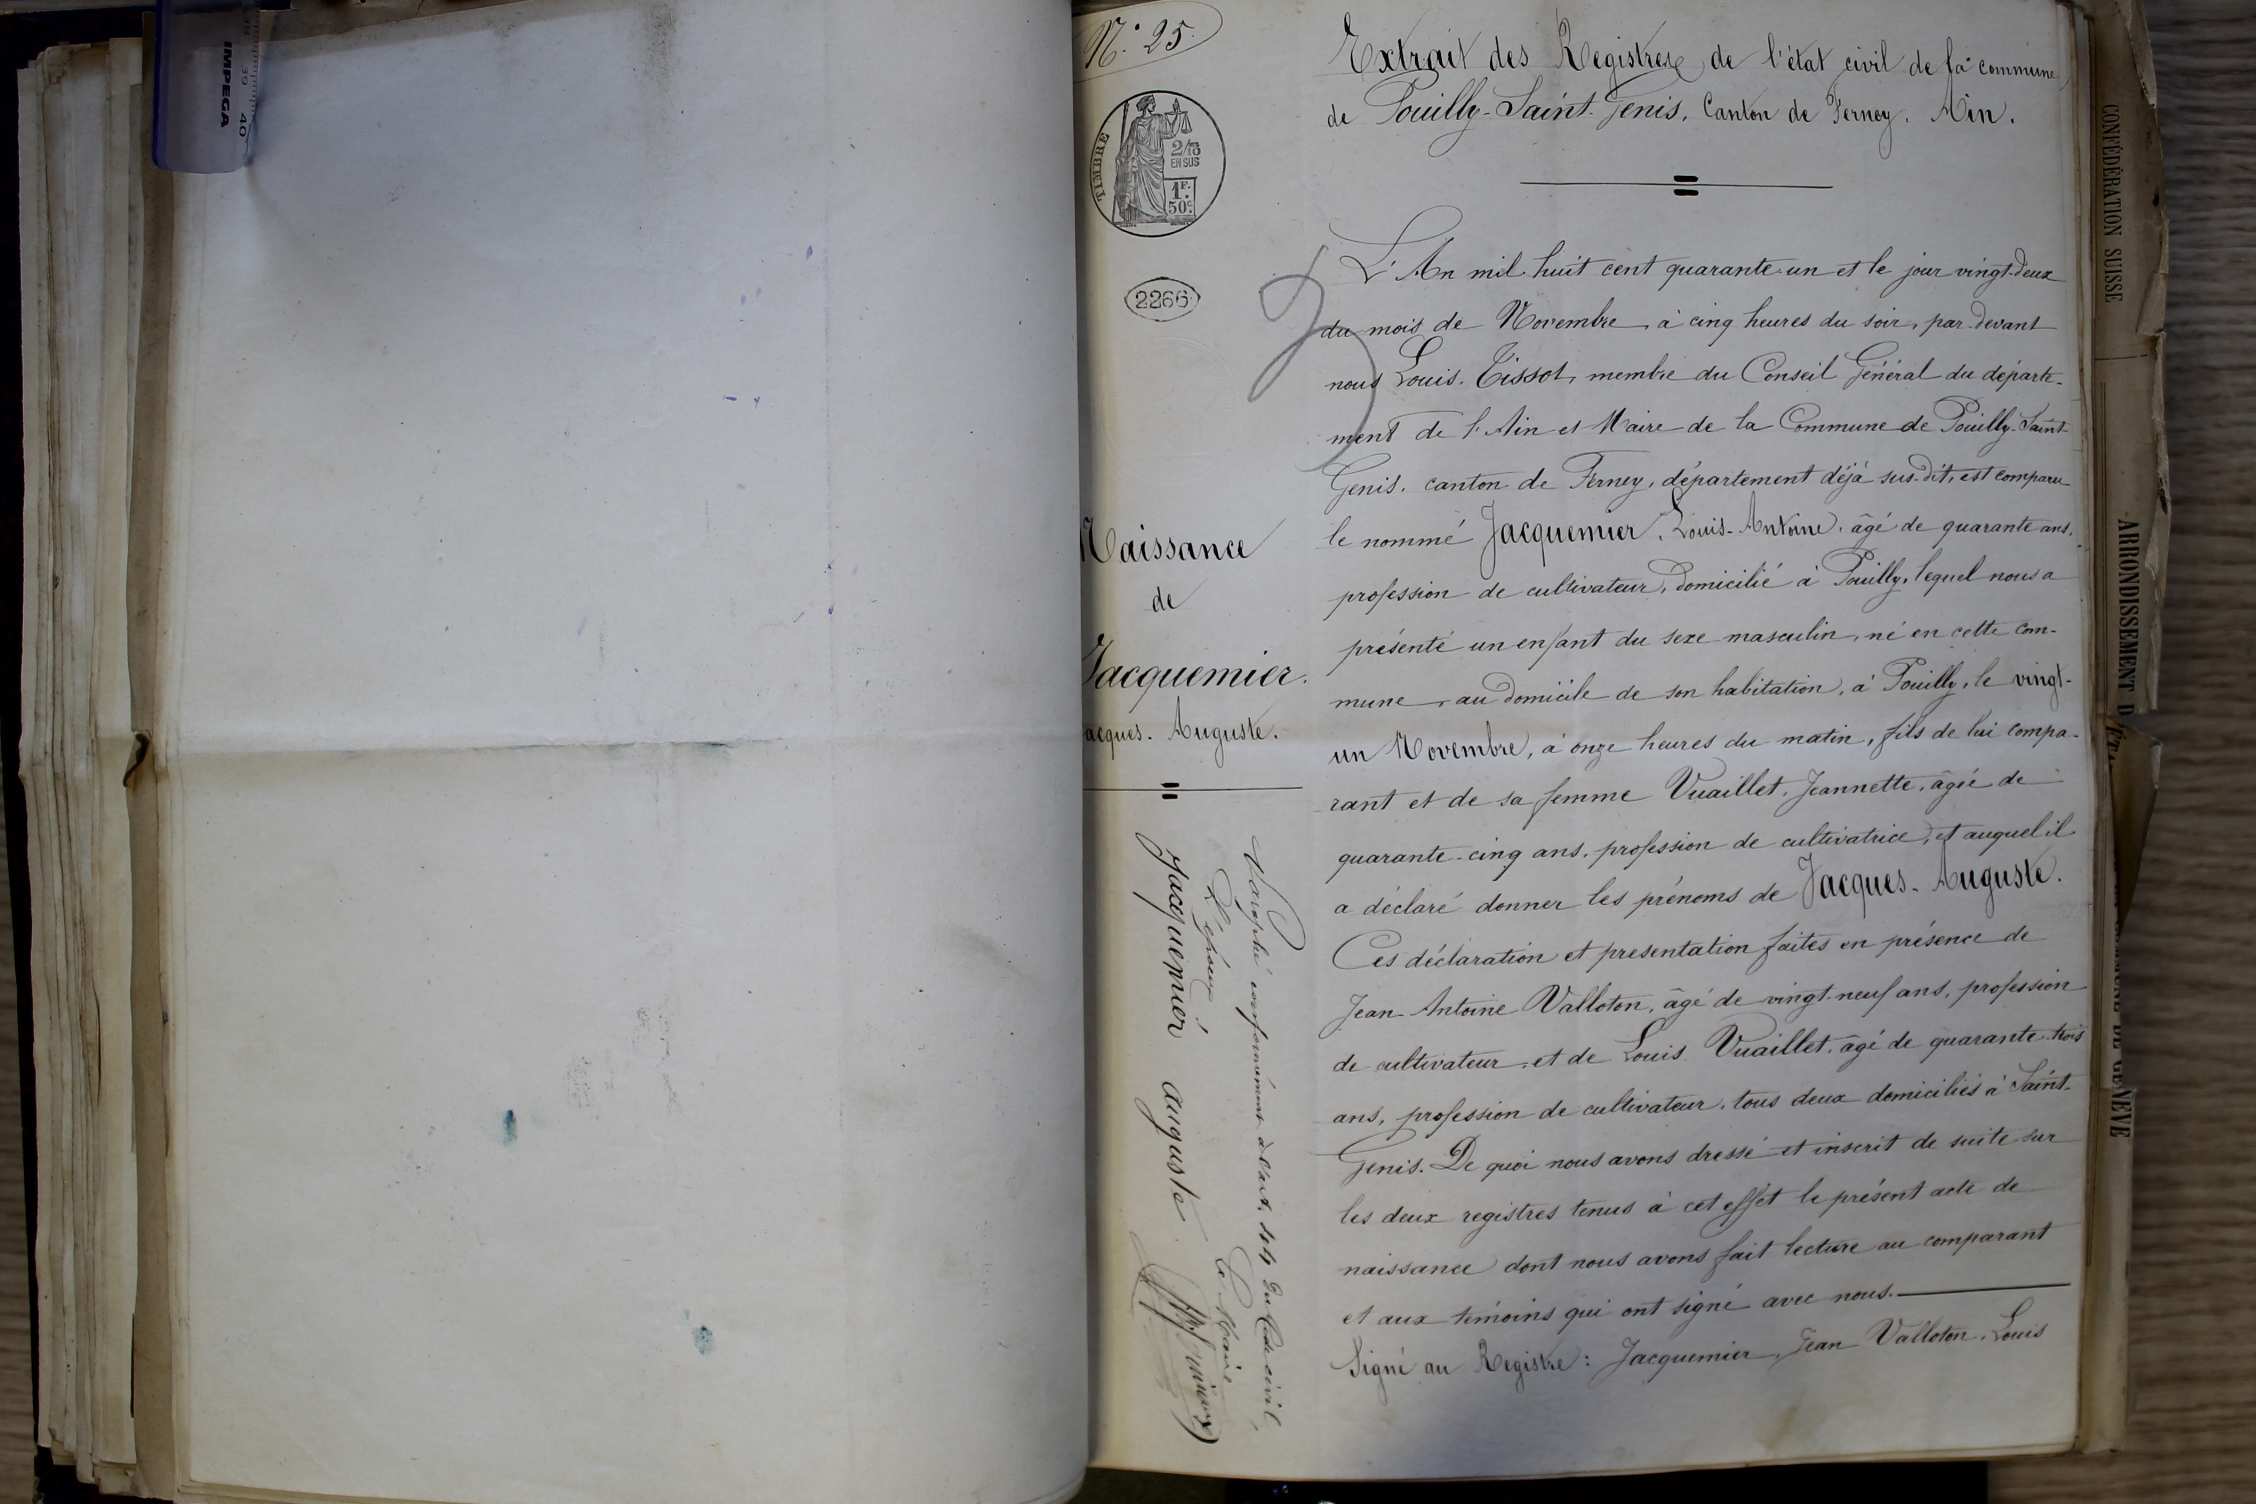 N.° 25.
Extrait des Registres de l'état civil de la commune
de Pouilly-Saint-Genis, Canton de Ferney. Ain.
TIMBRE
2/10
EN SUS
1F.
50c.
2266
L'An mil huit cent quarante-un et le jour vingt-deux
du mois de Novembre, à cinq heures du soir, par-devant
nous Louis Tissot, membre du Conseil Général du départe-
ment de l'Ain et Maire de la Commune de Pouilly-Saint-
Genis, canton de Ferney, département déjà sus-dit, est comparu
le nommé Jacquemier, Louis-Antoine, âgé de quarante ans,
profession de cultivateur, domicilié à Pouilly, lequel nous a
présenté un enfant du sexe masculin, né en cette com-
mune, au domicile de son habitation, à Pouilly, le vingt-
un Novembre, à onze heures du matin, fils de lui compa-
rant et de sa femme Vuaillet, Jeannette, âgée de
quarante-cinq ans, profession de cultivatrice, et auquel il
a déclaré donner les prénoms de Jacques-Auguste.
Ces déclaration et presentation faites en présence de
Jean Antoine Valloton, âgé de vingt-neuf ans, profession
de cultivateur et de Louis Vuaillet, âgé de quarante-trois
ans, profession de cultivateur, tous deux domiciliés à Saint-
Genis. De quoi nous avons dressé et inscrit de suite sur
les deux registres tenus à cet effet le présent acte de
naissance dont nous avons fait lecture au comparant
et aux témoins qui ont signé avec nous.
Signé au Registre: Jacquemier, Jean Valloton, Louis
Naissance
de
Jacquemier.
acques-Auguste.
Paraphé conformément à l'art. 44 du Code civil,
L'époux Le Maire
Jacquemier auguste
IMPEGA
39 40
CONFÉDÉRATION SUISSE
ARRONDISSEMENT D
DE GENÈVE